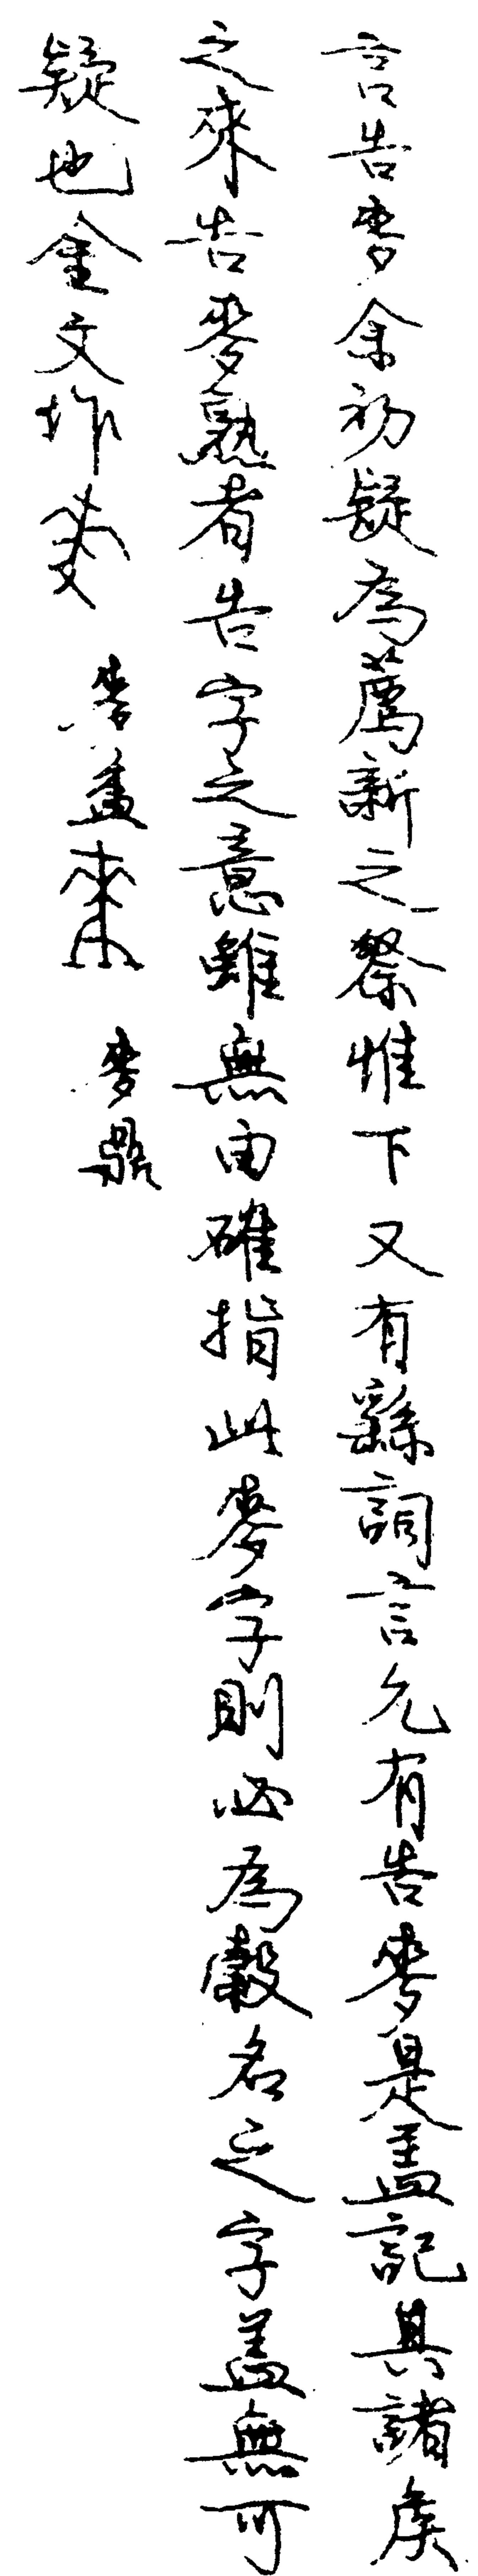 言告麥余初疑為薦新之祭惟下又有繇詞言允有告麥是蓋記其諸矦
之來告麥熟者告字之意雖無由確指此麥字則必為穀名之字蓋無可
疑也金文作 麥盉 麥鼎